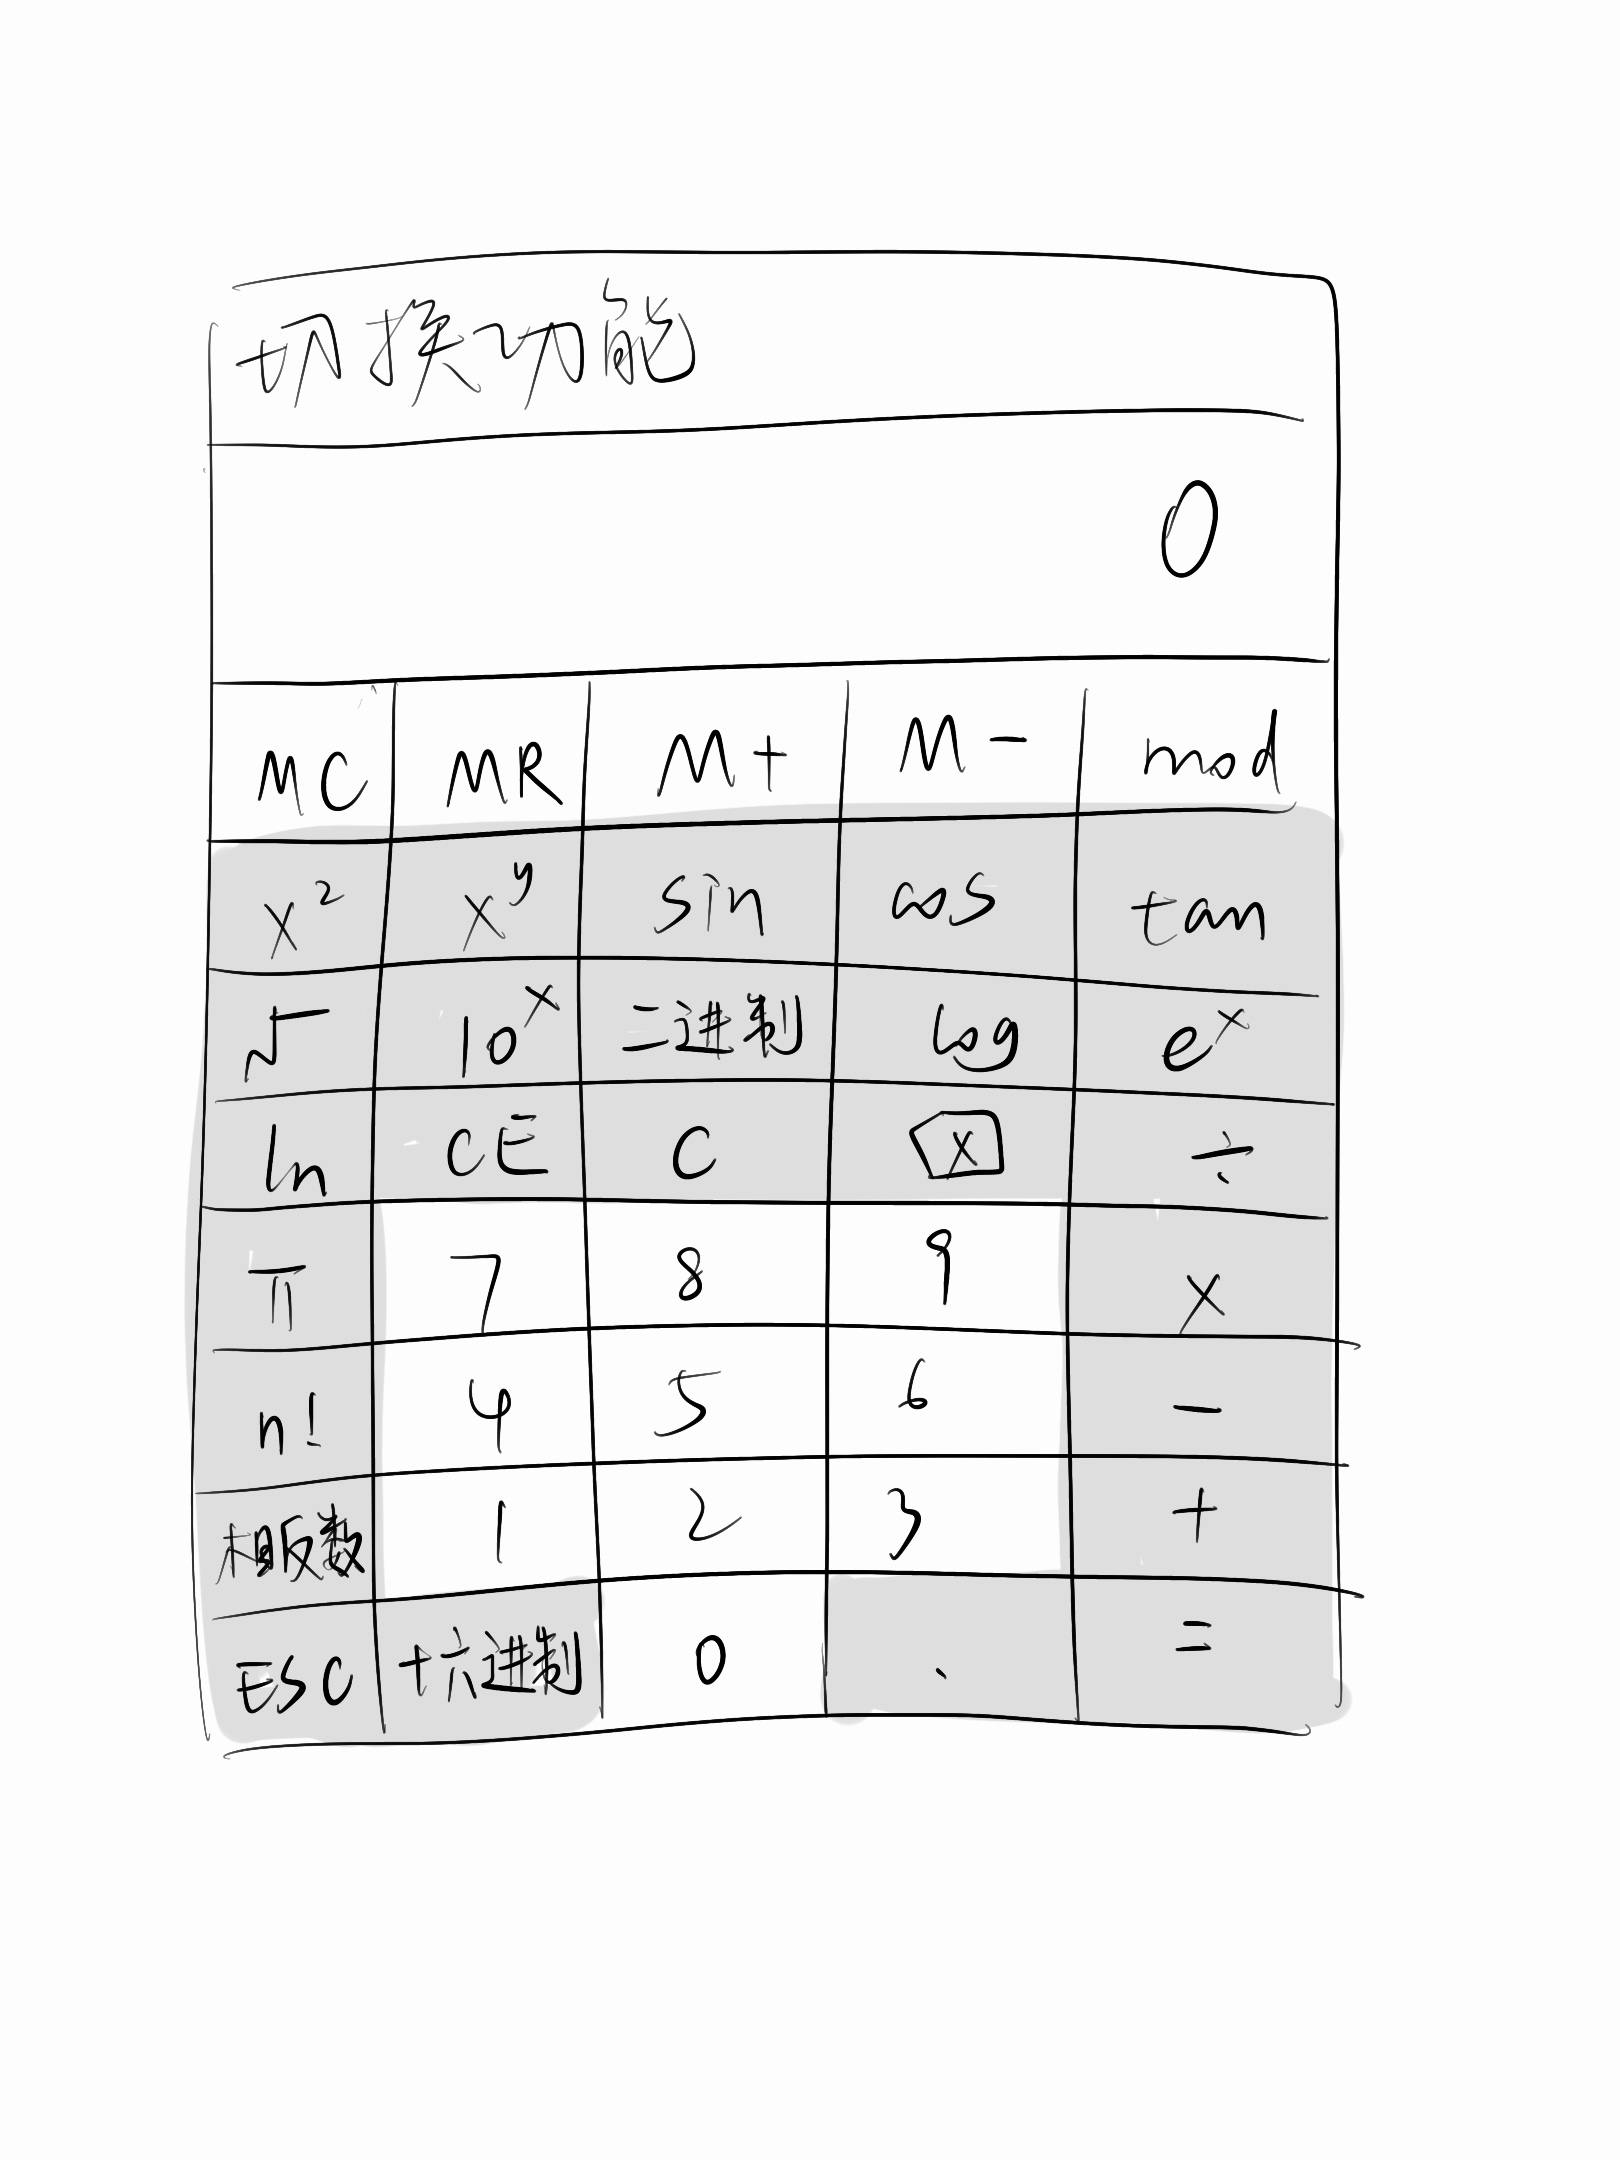 切换功能
0
MC MR M+ M- mod
x² xʸ sin cos tan
√ 10ˣ 二进制 log eˣ
ln CE C ⌫ ÷
π 7 8 9 ×
n! 4 5 6 -
相反数 1 2 3 +
ESC 十六进制 0 . =